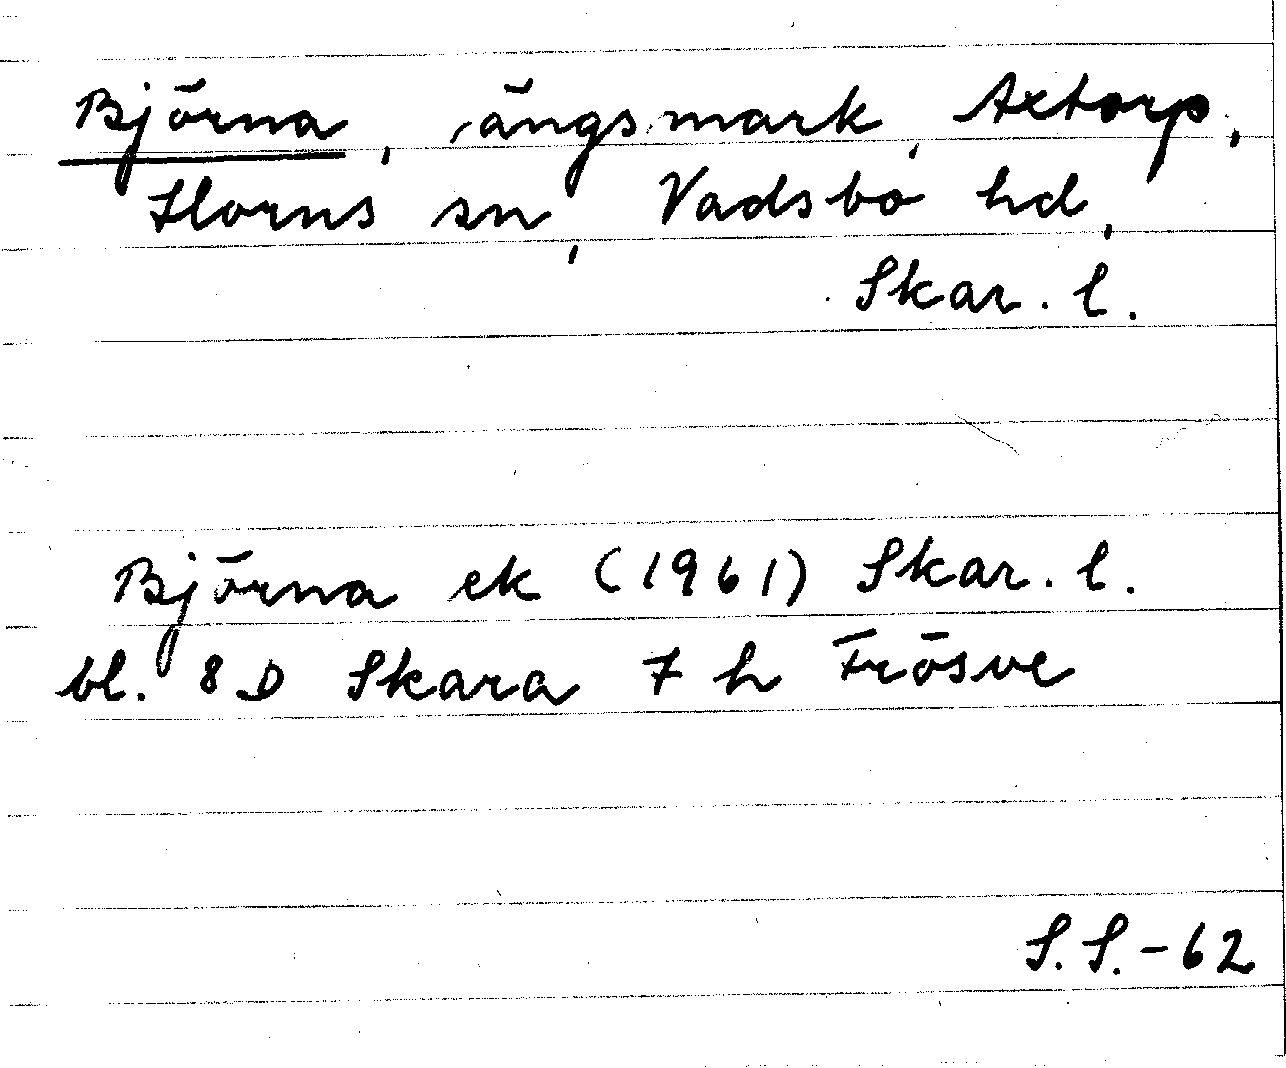 Björna, ängsmark, Axtorp,
Horns sn, Vadsbo hd,
Skar. l.
Björna ek (1961) Skar. l.
bl. 8 D Skara 7 h Frösve
S.S.-62